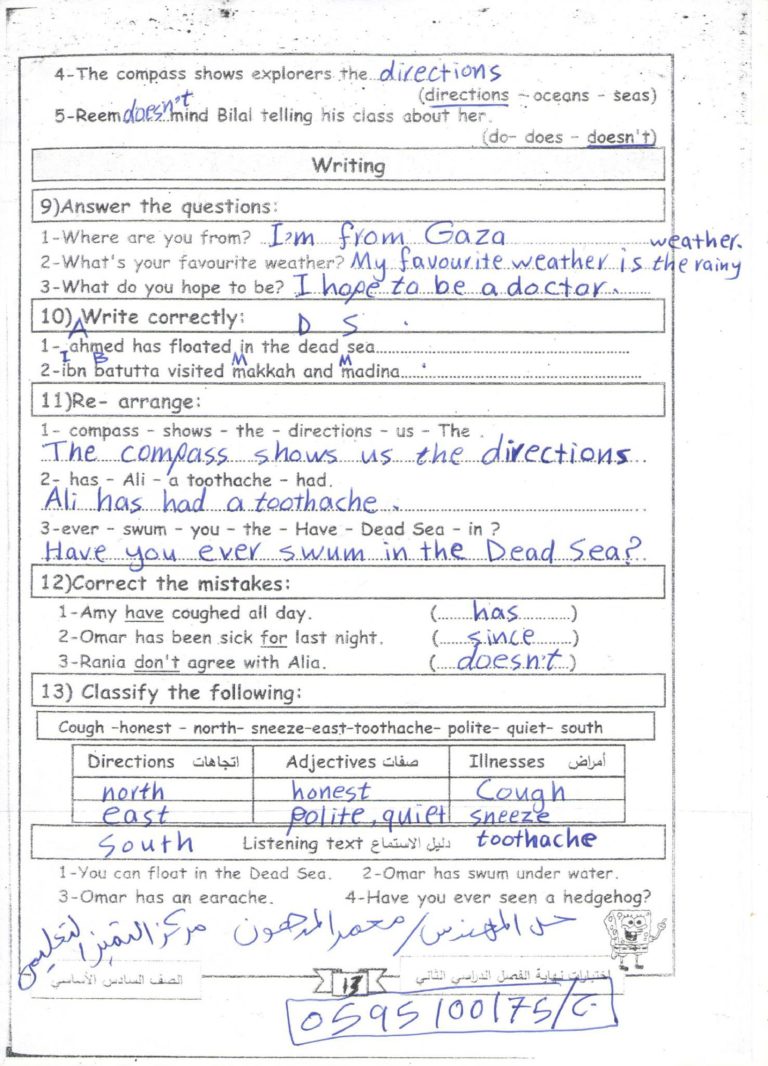 4-The compass shows explorers the..directions
(directions - oceans - seas)
5-Reem doesn't mind Bilal telling his class about her.
(do- does - doesn't)
Writing
9)Answer the questions:
1-Where are you from? I'm from Gaza
2-What's your favourite weather? My favourite weather is the rainy weather.
3-What do you hope to be? I hope to be a doctor.
10) Write correctly:
A D S .
1- ahmed has floated in the dead sea
I B M M
2-ibn batutta visited makkah and madina .
11)Re- arrange:
1- compass - shows - the - directions - us - The .
The compass shows us the directions.
2- has - Ali - a toothache - had.
Ali has had a toothache.
3-ever - swum - you - the - Have - Dead Sea - in ?
Have you ever swum in the Dead Sea?
12)Correct the mistakes:
1-Amy have coughed all day. ( has )
2-Omar has been sick for last night. ( since )
3-Rania don't agree with Alia. ( doesn't )
13) Classify the following:
Cough -honest - north- sneeze-east-toothache- polite- quiet- south
Directions اتجاهات Adjectives صفات Illnesses أمراض
north honest Cough
east polite, quiet sneeze
south Listening text دليل الاستماع toothache
1-You can float in the Dead Sea. 2-Omar has swum under water.
3-Omar has an earache. 4-Have you ever seen a hedgehog?
حل المهندس/ معمر المدهون مركز التميز التعليمي
اختبارات نهاية الفصل الدراسي الثاني 13 الصف السادس الأساسي
0595100175/ج